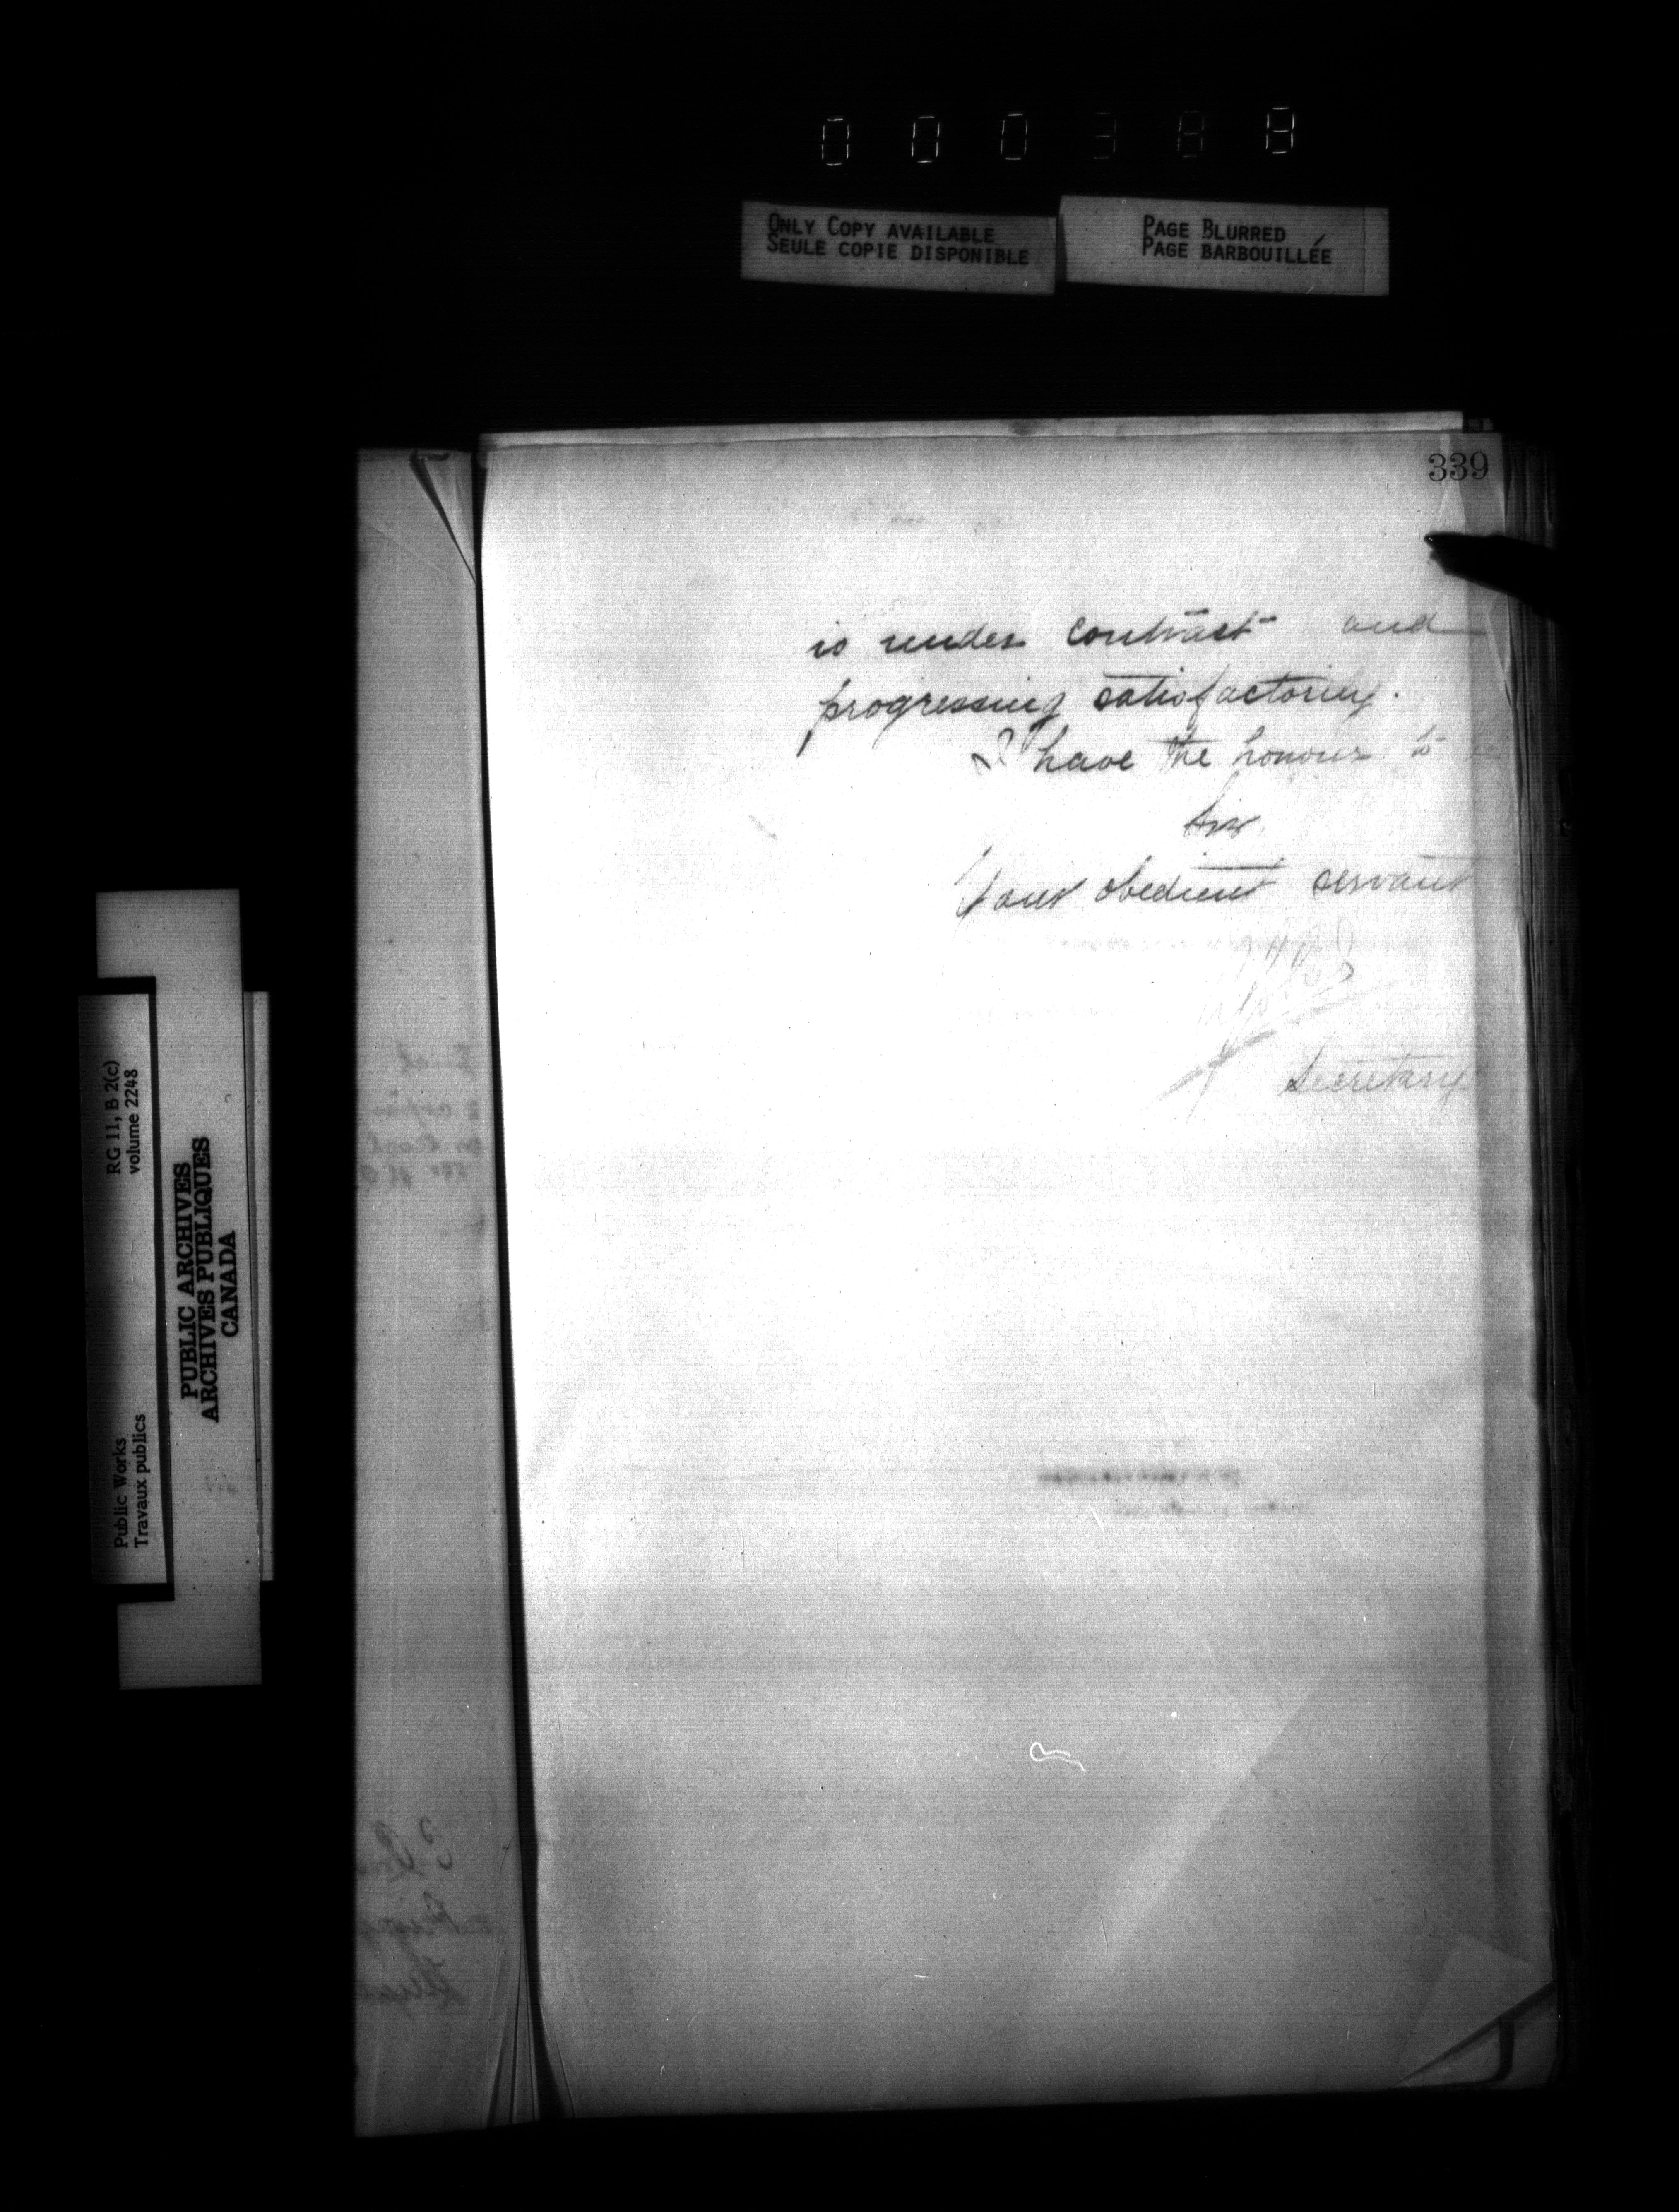 000388
ONLY COPY AVAILABLE
SEULE COPIE DISPONIBLE
PAGE BLURRED
PAGE BARBOUILLÉE
339
is under contract and
progressing satisfactorily.
I have the honour to be
Sir
Your obedient servant
Secretary
RG 11, B 2(c)
volume 2248
PUBLIC ARCHIVES
ARCHIVES PUBLIQUES
CANADA
Public Works
Travaux publics